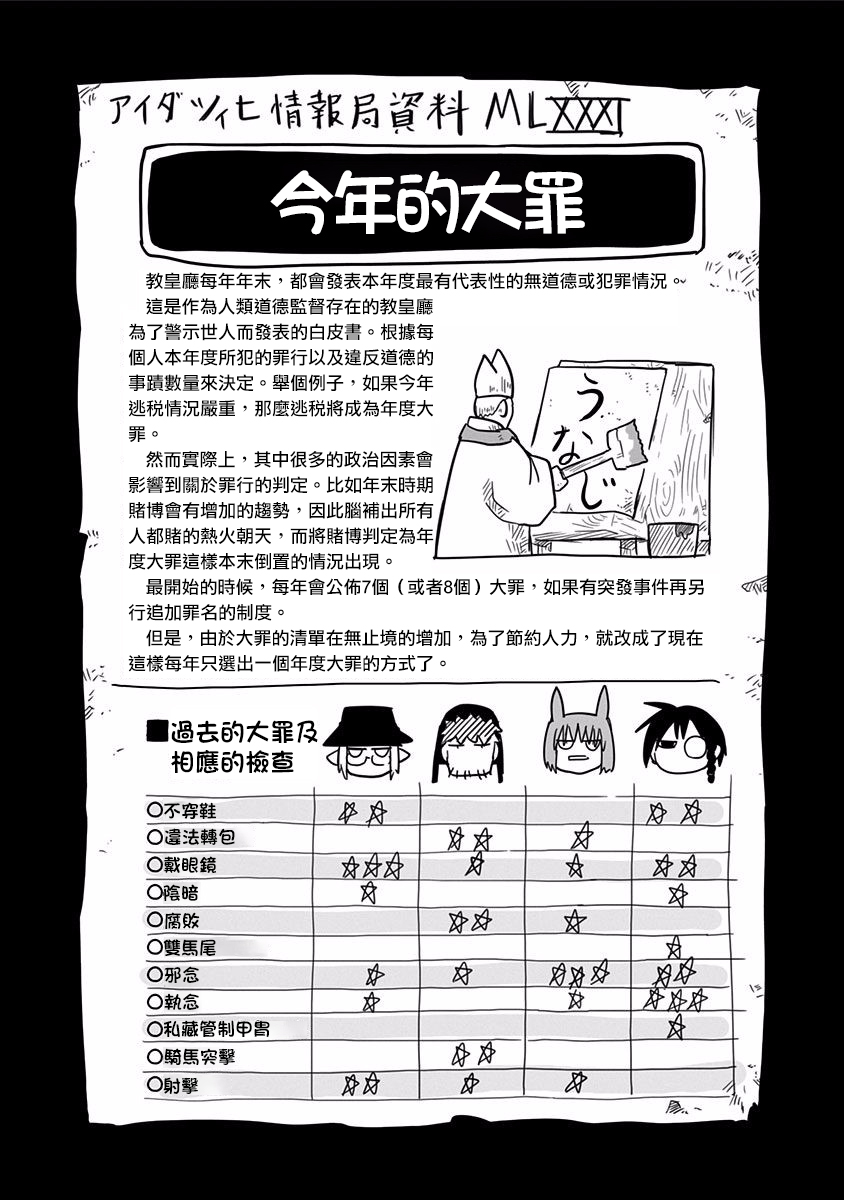 アイダツィヒ情報局資料 MLXXXI
今年的大罪
教皇廳每年年末，都會發表本年度最有代表性的無道德或犯罪情況。
這是作為人類道德監督存在的教皇廳
為了警示世人而發表的白皮書。根據每
個人本年度所犯的罪行以及違反道德的
事蹟數量來決定。舉個例子，如果今年
逃税情況嚴重，那麼逃税將成為年度大
罪。
然而實際上，其中很多的政治因素會
影響到關於罪行的判定。比如年末時期
賭博會有增加的趨勢，因此腦補出所有
人都賭的熱火朝天，而將賭博判定為年
度大罪這樣本末倒置的情況出現。
うなじ
最開始的時候，每年會公佈7個（或者8個）大罪，如果有突發事件再另
行追加罪名的制度。
但是，由於大罪的清單在無止境的增加，為了節約人力，就改成了現在
這樣每年只選出一個年度大罪的方式了。
■過去的大罪及
相應的檢查
○不穿鞋 ☆☆ ☆☆
○違法轉包 ☆☆ ☆
○戴眼鏡 ☆☆☆ ☆ ☆ ☆☆
○陰暗 ☆ ☆
○腐敗 ☆☆ ☆
○雙馬尾 ☆
○邪念 ☆ ☆ ☆☆☆ ☆☆
○執念 ☆ ☆ ☆☆☆
○私藏管制甲冑 ☆
○騎馬突擊 ☆☆
○射擊 ☆☆ ☆ ☆